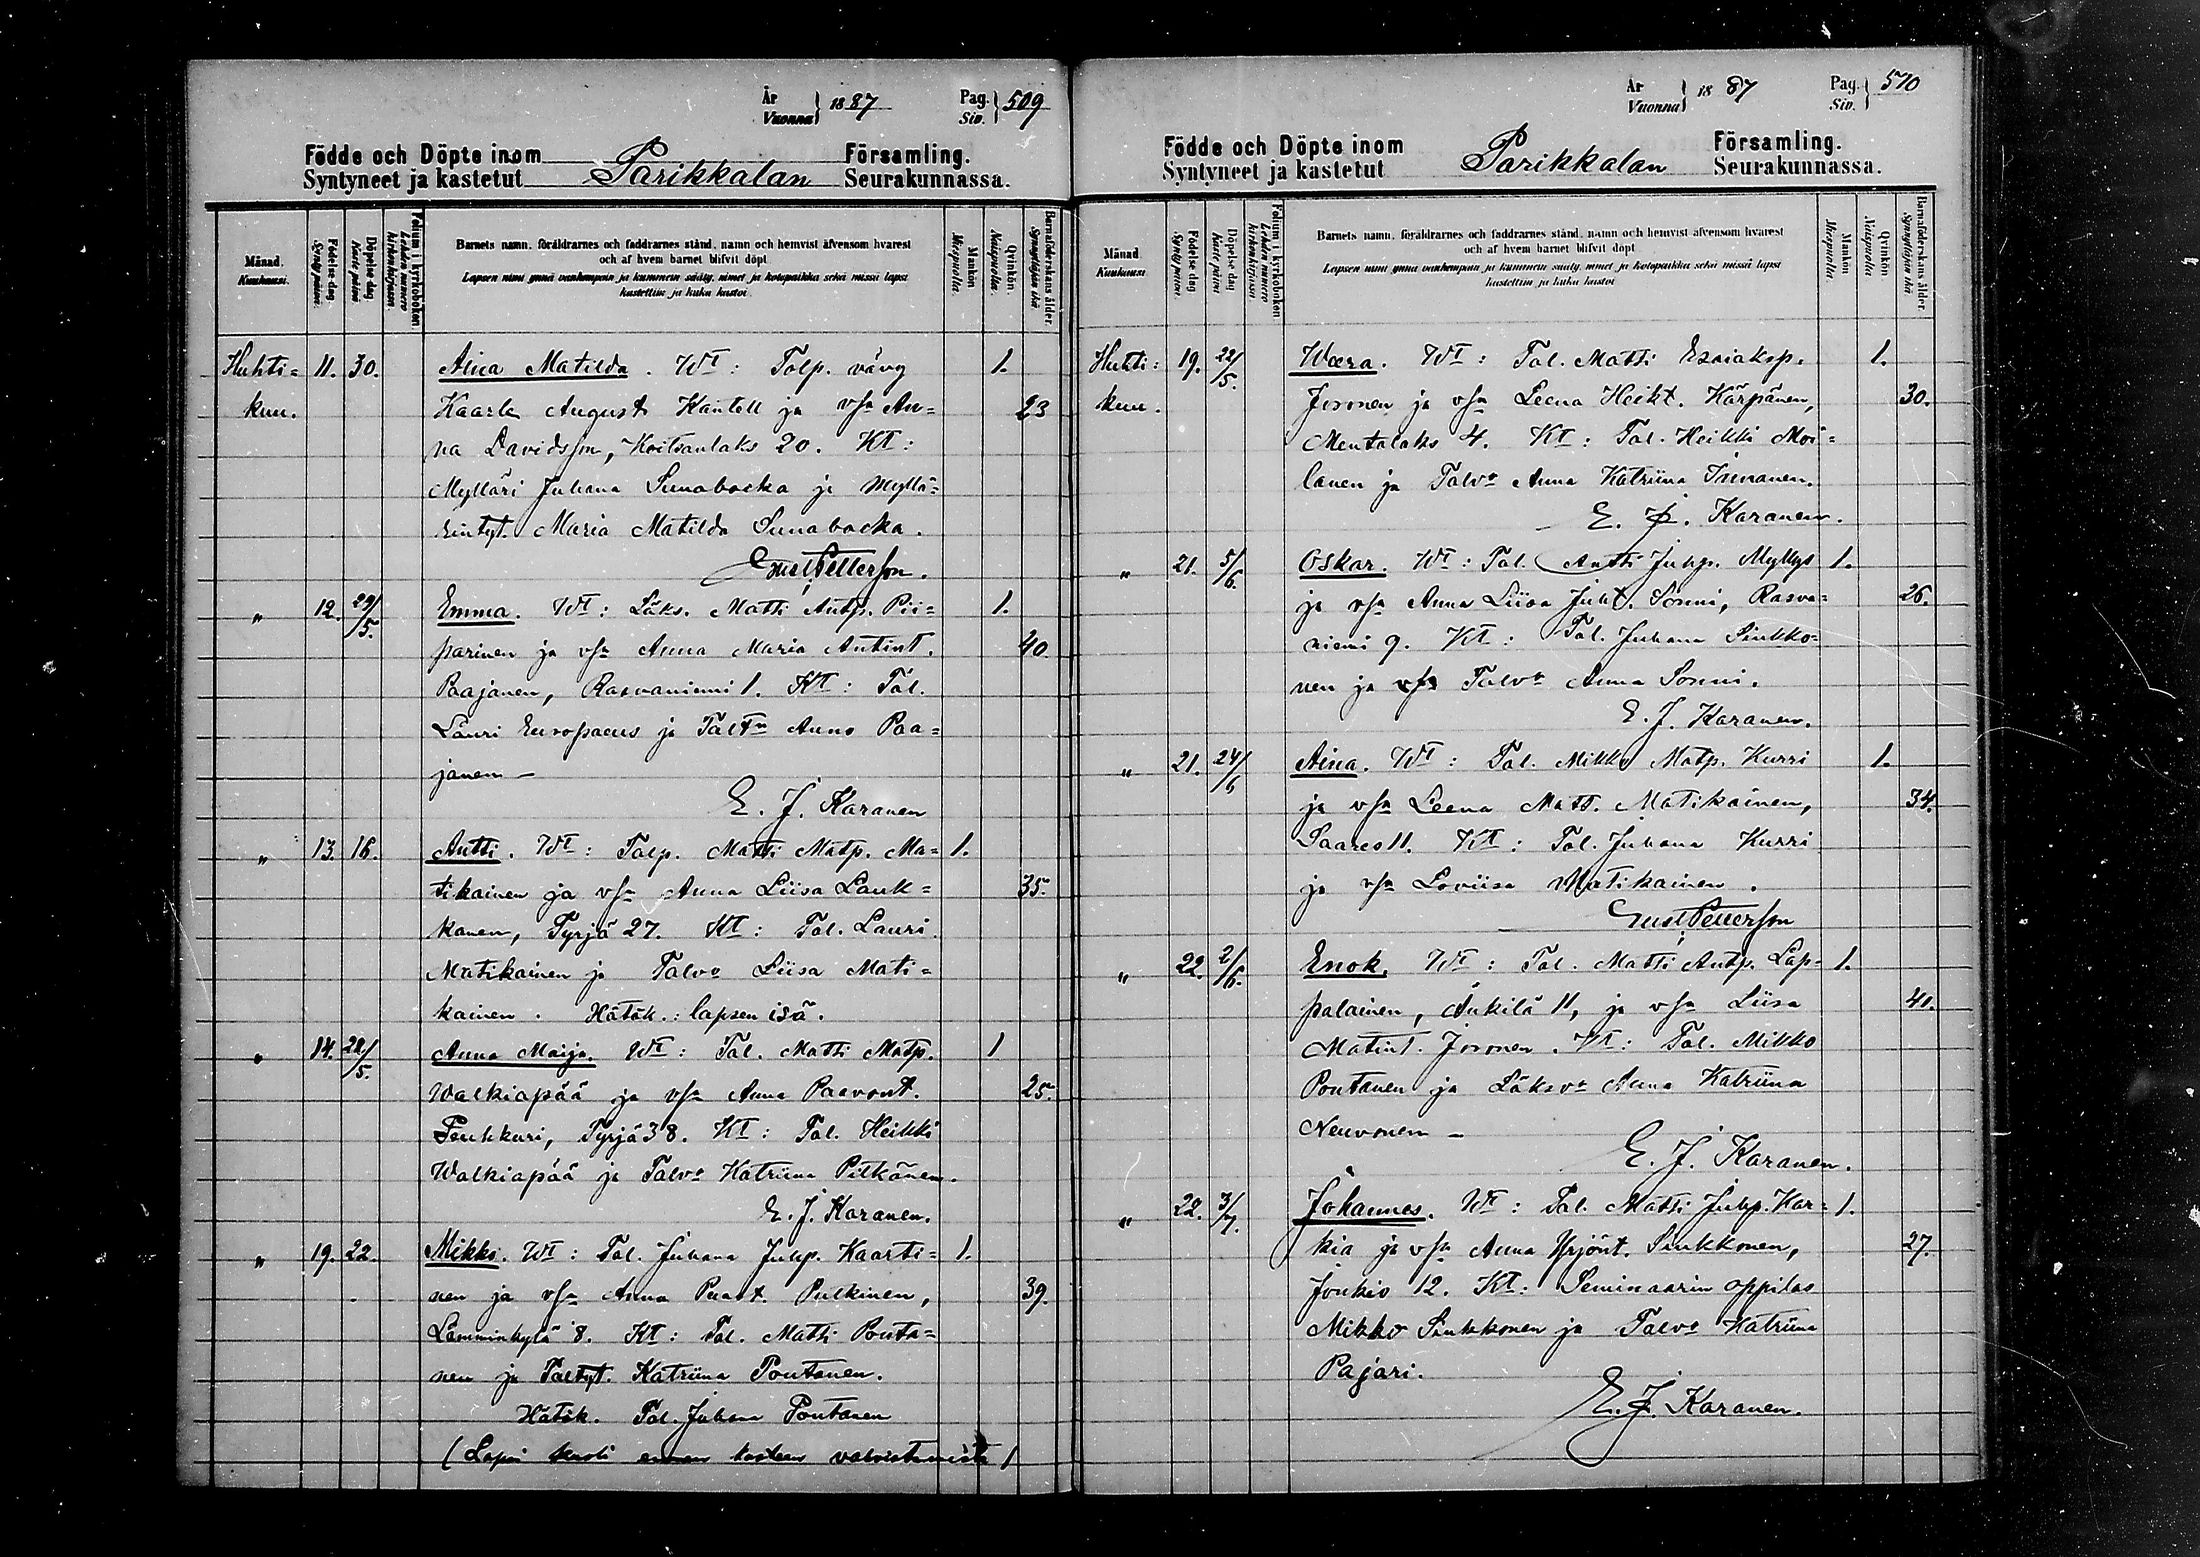 År
Vuonna } 1887 Pag.
Siv. } 509
Födde och Döpte inom Parikkalan Församling.
Syntyneet ja kastetut Seurakunnassa.
Månad. Kuukausi.
Födelse dag Synty päivä
Döpelse dag Kaste päivä
Folium i kyrkoboken Lehden numero kirkonkirjassa
Barnets namn, föräldrarnes och faddrarnes stånd, namn och hemvist äfvensom hvarest
och af hvem barnet blifvit döpt
Lapsen nimi ynnä vanhempain ja kummein sääty, nimet ja kotopaikka sekä missä lapsi
kastettiin ja kuka kastoi
Mankön Miespuolia.
Qvinkön. Naispuolia.
Barnaföderskans ålder. Synnyttäjän ikä
Huhti= 11. 30. Aina Matilda. Wt: Talp. vävy 1.
kuu. Kaarle August Kantell ja vsa An= 23
na Davidsson, Koitsanlaks 20. Kt:
Mylläri Juhana Sunabacka ja Myllä=
rintyt. Maria Matilda Sunabacka.
Gust Petterson.
" 12. 29/5. Emma. Wt: Läks. Matti Antp. Pii= 1.
parinen ja vsa Anna Maria Antint. 40.
Paajanen, Rasvaniemi 1. Kt: Tal.
Lauri Europaeus ja Taltr Anna Paa=
janen –
E. J. Karanen
" 13. 16. Antti. Wt: Talp. Matti Matp. Ma= 1.
tikainen ja vsa Anna Liisa Lauk= 35.
kanen, Tyrjä 27. Kt: Tal. Lauri
Matikainen ja Talvo Liisa Mati=
kainen. Hätäk.: lapsen isä.
" 14. 28/5. Anna Maija. Wt: Tal. Matti Matp. 1
Walkiapää ja vsa Anna Paavont. 25.
Peuhkuri, Tyrjä 38. Kt: Tal. Heikki
Walkiapää ja Talvo Katriina Pitkänen.
E. J. Karanen.
" 19. 22. Mikko. Wt: Tal. Juhana Juhp. Kaarti= 1.
nen ja vsa Anna Paavt. Pulkinen, 39.
Lamminkylä 8. Kt: Tal. Matti Ponta=
nen ja Taltyt. Katriina Pontanen.
Hätäk. Tal. Juhana Pontanen
(Lapsi kuoli ennen kasteen vahvistamista)
År
Vuonna } 1887 Pag.
Siv. } 510
Födde och Döpte inom Parikkalan Församling.
Syntyneet ja kastetut Seurakunnassa.
Månad Kuukausi
Födelse dag Synty päivä
Döpelse dag Kaste päivä
Folium i kyrkoboken Lehden numero kirkonkirjassa
Barnets namn, föräldrarnes och faddrarnes stånd, namn och hemvist äfvensom hvarest
och af hvem barnet blifvit döpt
Lapsen nimi ynnä vanhempain ja kummein sääty, nimet ja kotopaikka sekä missä lapsi
kastettiin ja kuka kastoi
Mankön Miespuolia
Qvinkön. Naispuolia.
Barnaföderskans ålder. Synnyttäjän ikä
Huhti= 19. 22/5. Weera. Wt: Tal. Matti Esaiaksp. 1.
kuu. Joronen ja vsa Leena Heikt. Kärpänen, 30.
Mentalaks 4. Kt: Tal. Heikki Moi=
lanen ja Talvo Anna Katriina Innanen.
E. J. Karanen.
" 21. 5/6. Oskar. Wt: Tal. Antti Juhp. Myllys 1.
ja vsa Anna Liisa Juht. Sonni, Rasva= 26.
niemi 9. Kt: Tal. Juhana Sinkko=
nen ja vsa Talvo Anna Sonni.
E. J. Karanen.
" 21. 24/6 Aina. Wt: Tal. Mikko Matp. Kurri 1.
ja vsa Leena Matt. Matikainen, 34.
Saares 11. Kt: Tal. Juhana Kurri
ja vsa Loviisa Matikainen.
Gust Petterson
" 22. 2/6. Enok. Wt: Tal. Matti Antp. Lap= 1.
palainen, Änkilä 11, ja vsa Liisa 41.
Matint. Joronen. Kt: Tal. Mikko
Pontanen ja Läksvo Anna Katriina
Neuvonen –
E. J. Karanen.
" 22. 3/7. Johannes. Wt: Tal. Matti Juhp. Kar= 1.
kia ja vsa Anna Yrjönt. Sinkkonen, 27.
Joukio 12. Kt: Seminaarin oppilas
Mikko Sinkkonen ja Talvo Katriina
Pajari.
E. J. Karanen.